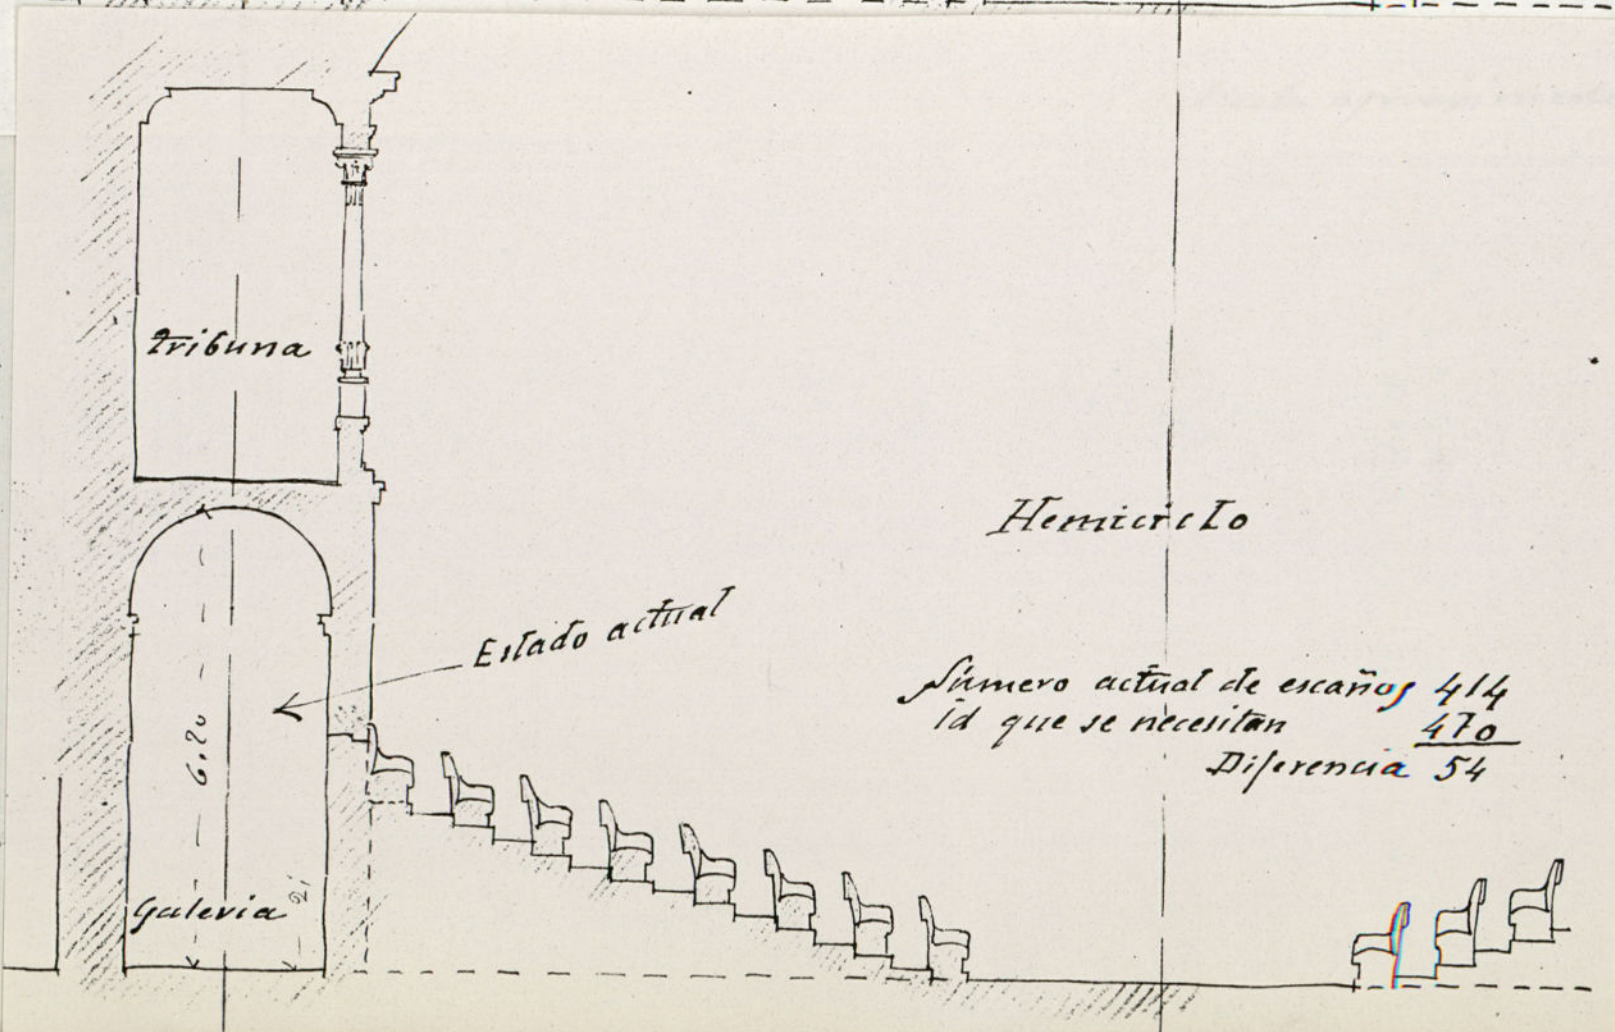 Tribuna
Hemiciclo
Estado actual
Número actual de escaños 414
id que se necesitan 470
Diferencia 54
6,20
Galeria